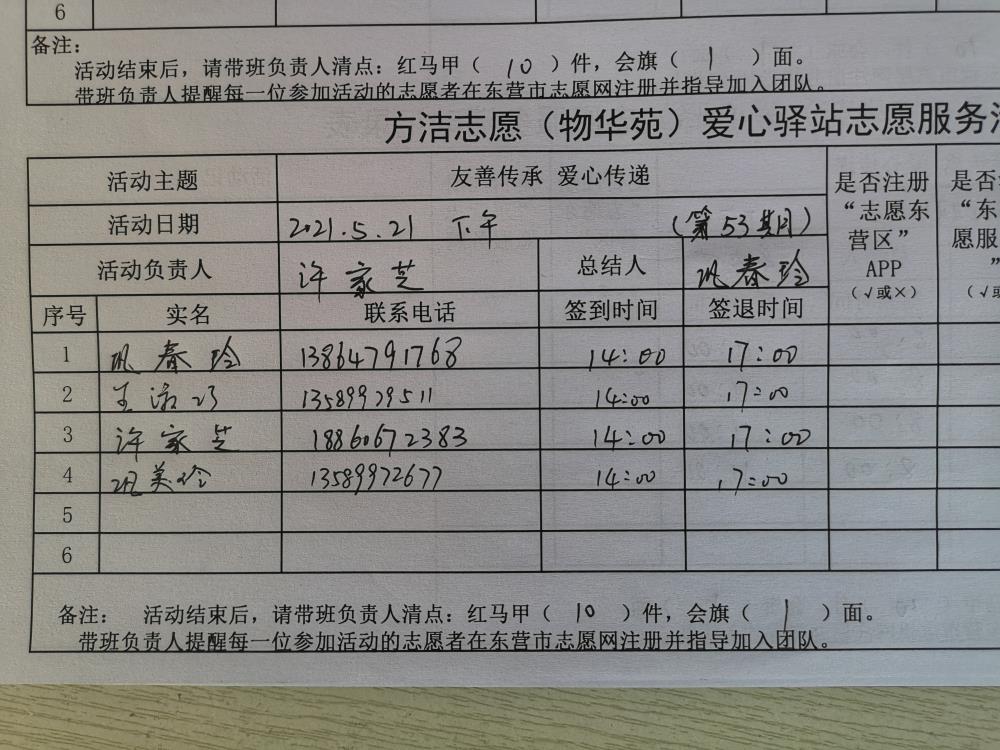 6
备注:
活动结束后，请带班负责人清点：红马甲（ 10 ）件，会旗（ 1 ）面。
带班负责人提醒每一位参加活动的志愿者在东营市志愿网注册并指导加入团队。
方洁志愿（物华苑）爱心驿站志愿服务
活动主题 友善传承 爱心传递 是否注册“志愿东营区”APP（√或×） 是否
活动日期 2021.5.21 下午 （第53期）
活动负责人 许家芝 总结人 巩春玲
序号 实名 联系电话 签到时间 签退时间
1 巩春玲 13864791768 14:00 17:00
2 王 13589979511 14:00 17:00
3 许家芝 18860672383 14:00 17:00
4 巩美玲 13589972677 14:00 17:00
5
6
备注： 活动结束后，请带班负责人清点：红马甲（ 10 ）件，会旗（ 1 ）面。
带班负责人提醒每一位参加活动的志愿者在东营市志愿网注册并指导加入团队。